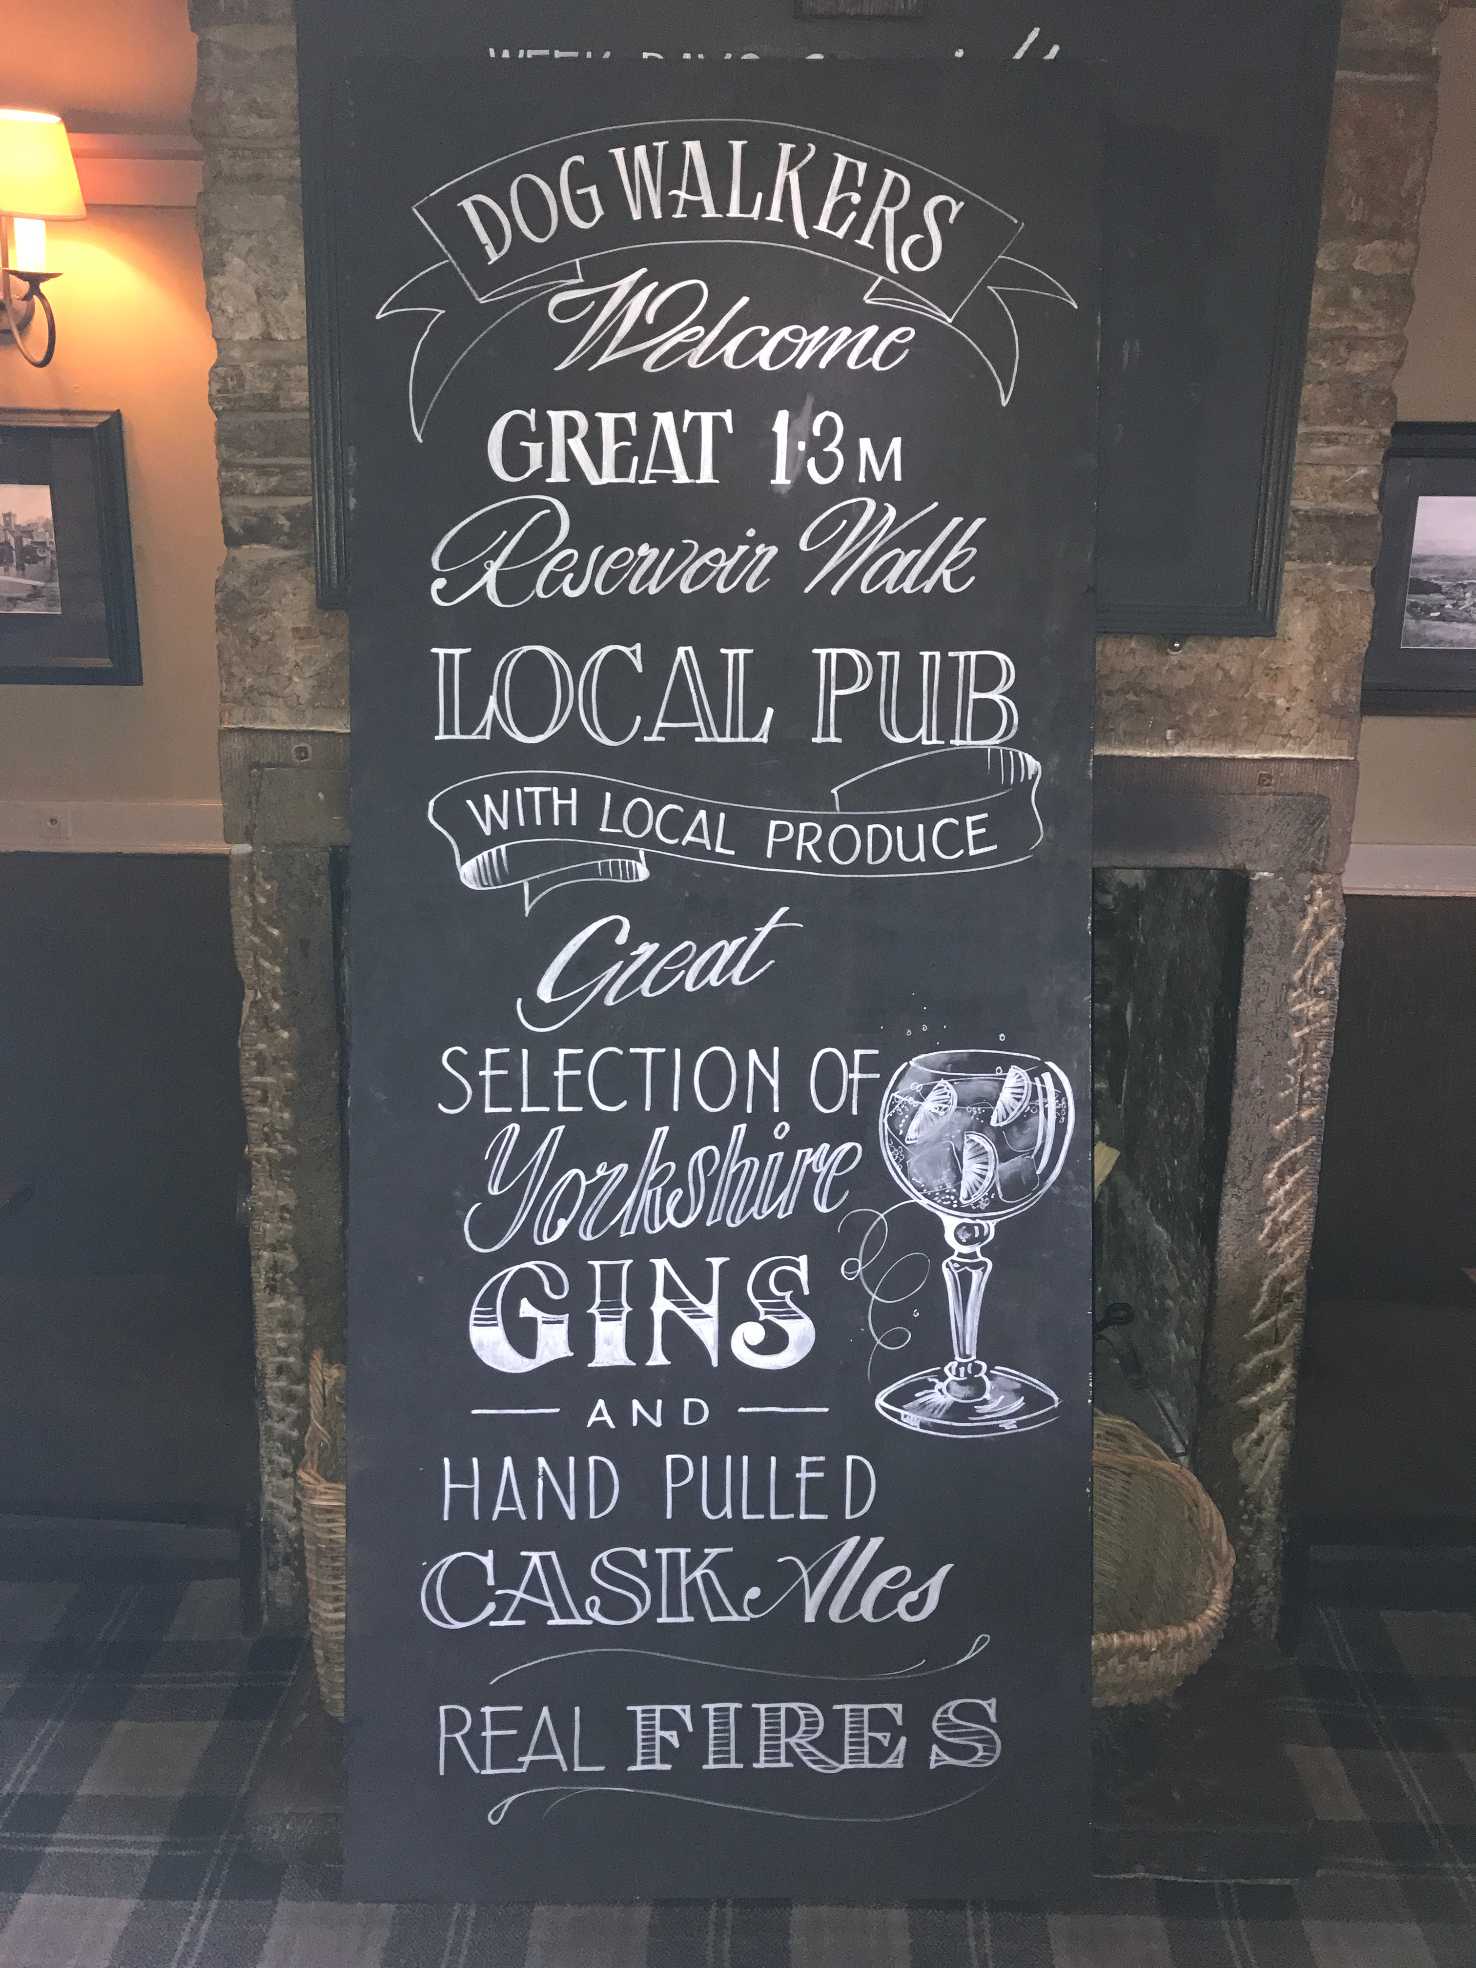 WEEK DAYS
DOG WALKERS
Welcome
GREAT 1·3M
Reservoir Walk
LOCAL PUB
WITH LOCAL PRODUCE
Great
SELECTION OF
Yorkshire
GINS
AND
HAND PULLED
CASK Ales
REAL FIRES